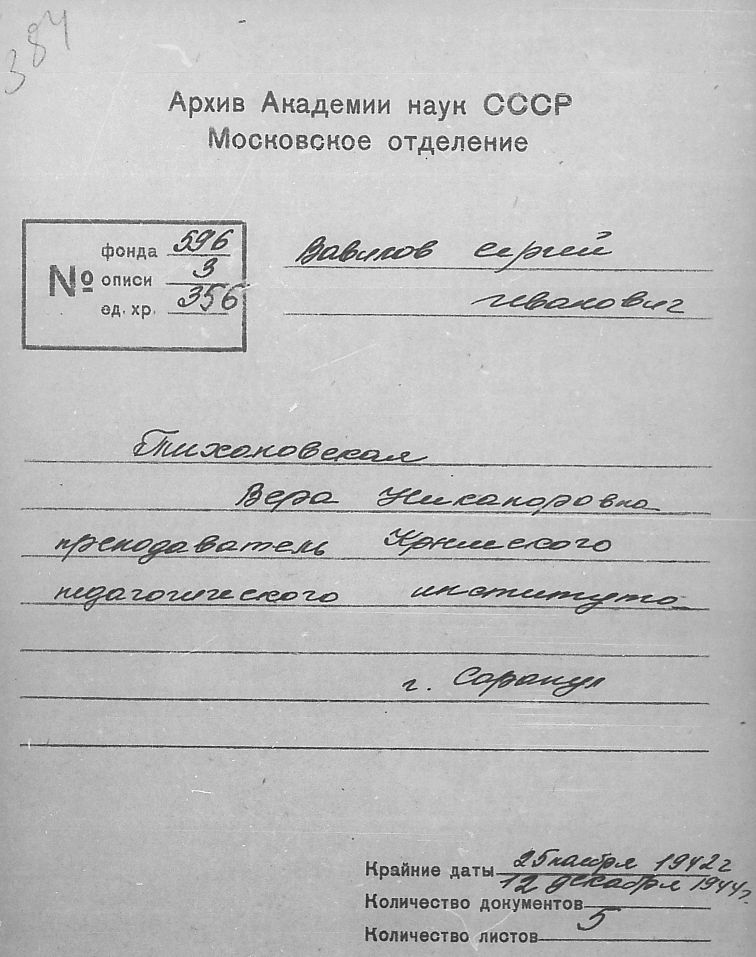 384
Архив Академии наук СССР
Московское отделение
№
фонда 596
описи 3
ед. хр. 356
Вавилов Сергей
Иванович
Тихановская
Вера Никаноровна
преподаватель Крымского
педагогического института
г. Сарапул
Крайние даты 25 ноября 1942 г
12 декабря 1944 г.
Количество документов
Количество листов 5